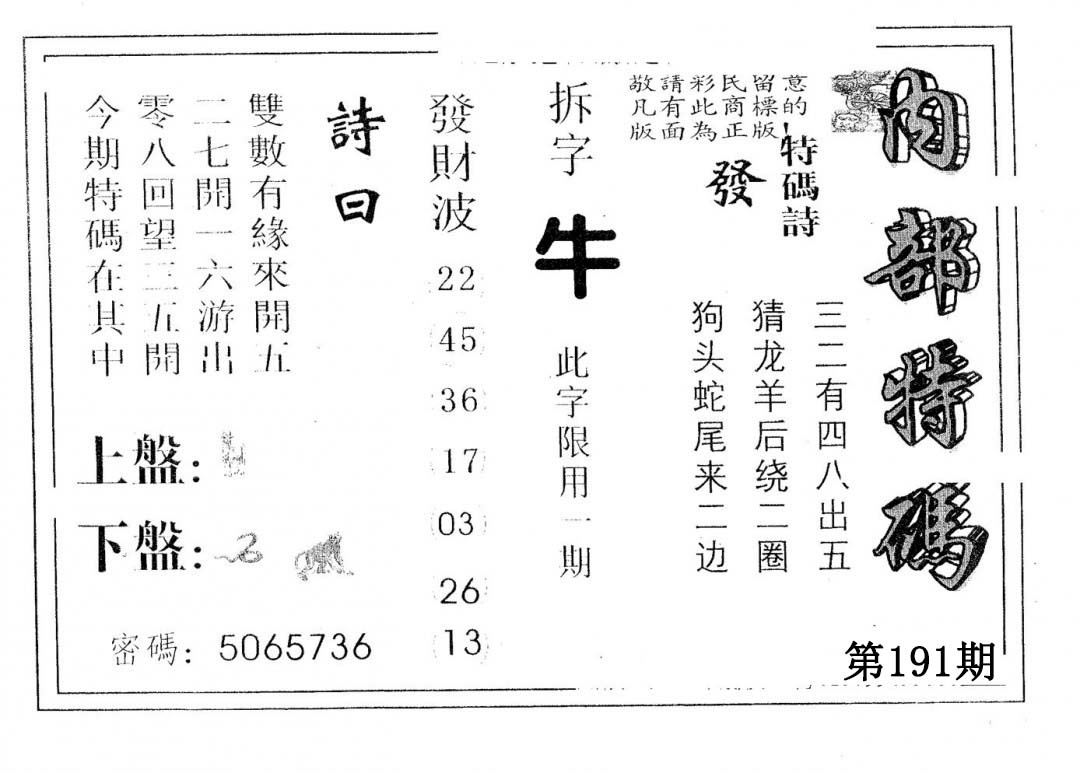 内部特碼
第191期
敬請彩民留意
凡有此商標的
版面為正版!
特碼詩
發
三二有四八出五
猜龙羊后绕二圈
狗头蛇尾来二边
拆字
牛
此字限用一期
發財波
22
45
36
17
03
26
13
詩曰
雙數有緣來開五
二七開一六游出
零八回望三五開
今期特碼在其中
上盤:
下盤:
密碼: 5065736